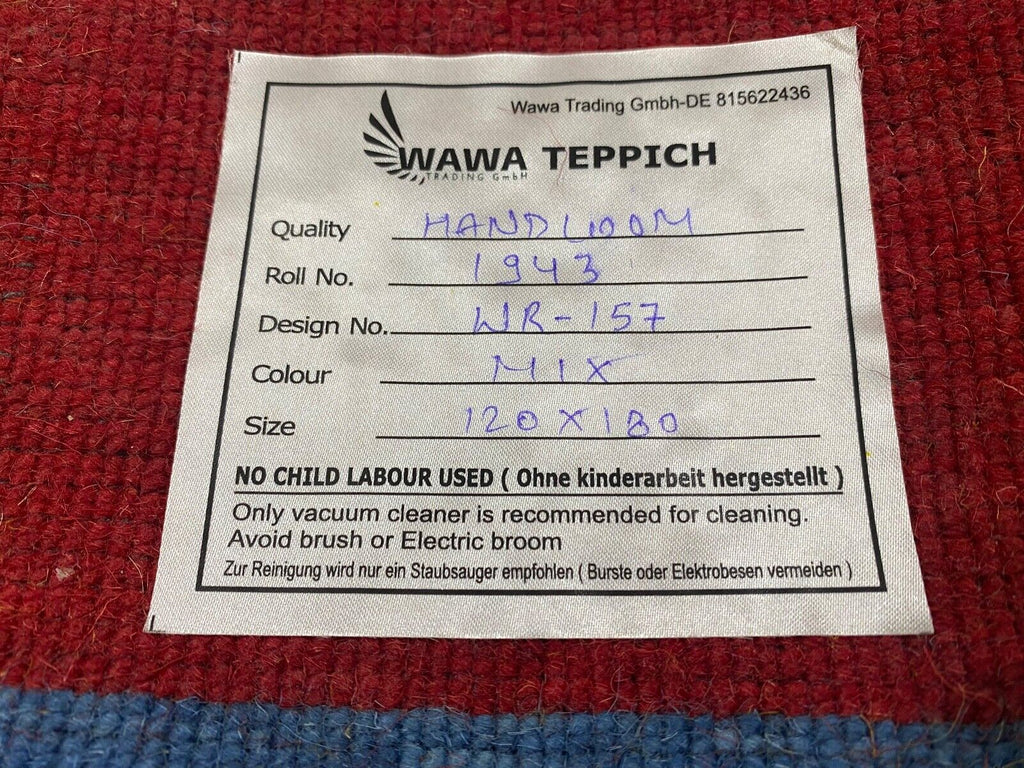 Wawa Trading Gmbh-DE 815622436
WAWA TEPPICH
TRADING GmbH
Quality HANDLOOM
Roll No. 1943
Design No. WR-157
Colour MIX
Size 120X180
NO CHILD LABOUR USED ( Ohne kinderarbeit hergestellt )
Only vacuum cleaner is recommended for cleaning.
Avoid brush or Electric broom
Zur Reinigung wird nur ein Staubsauger empfohlen ( Burste oder Elektrobesen vermeiden )